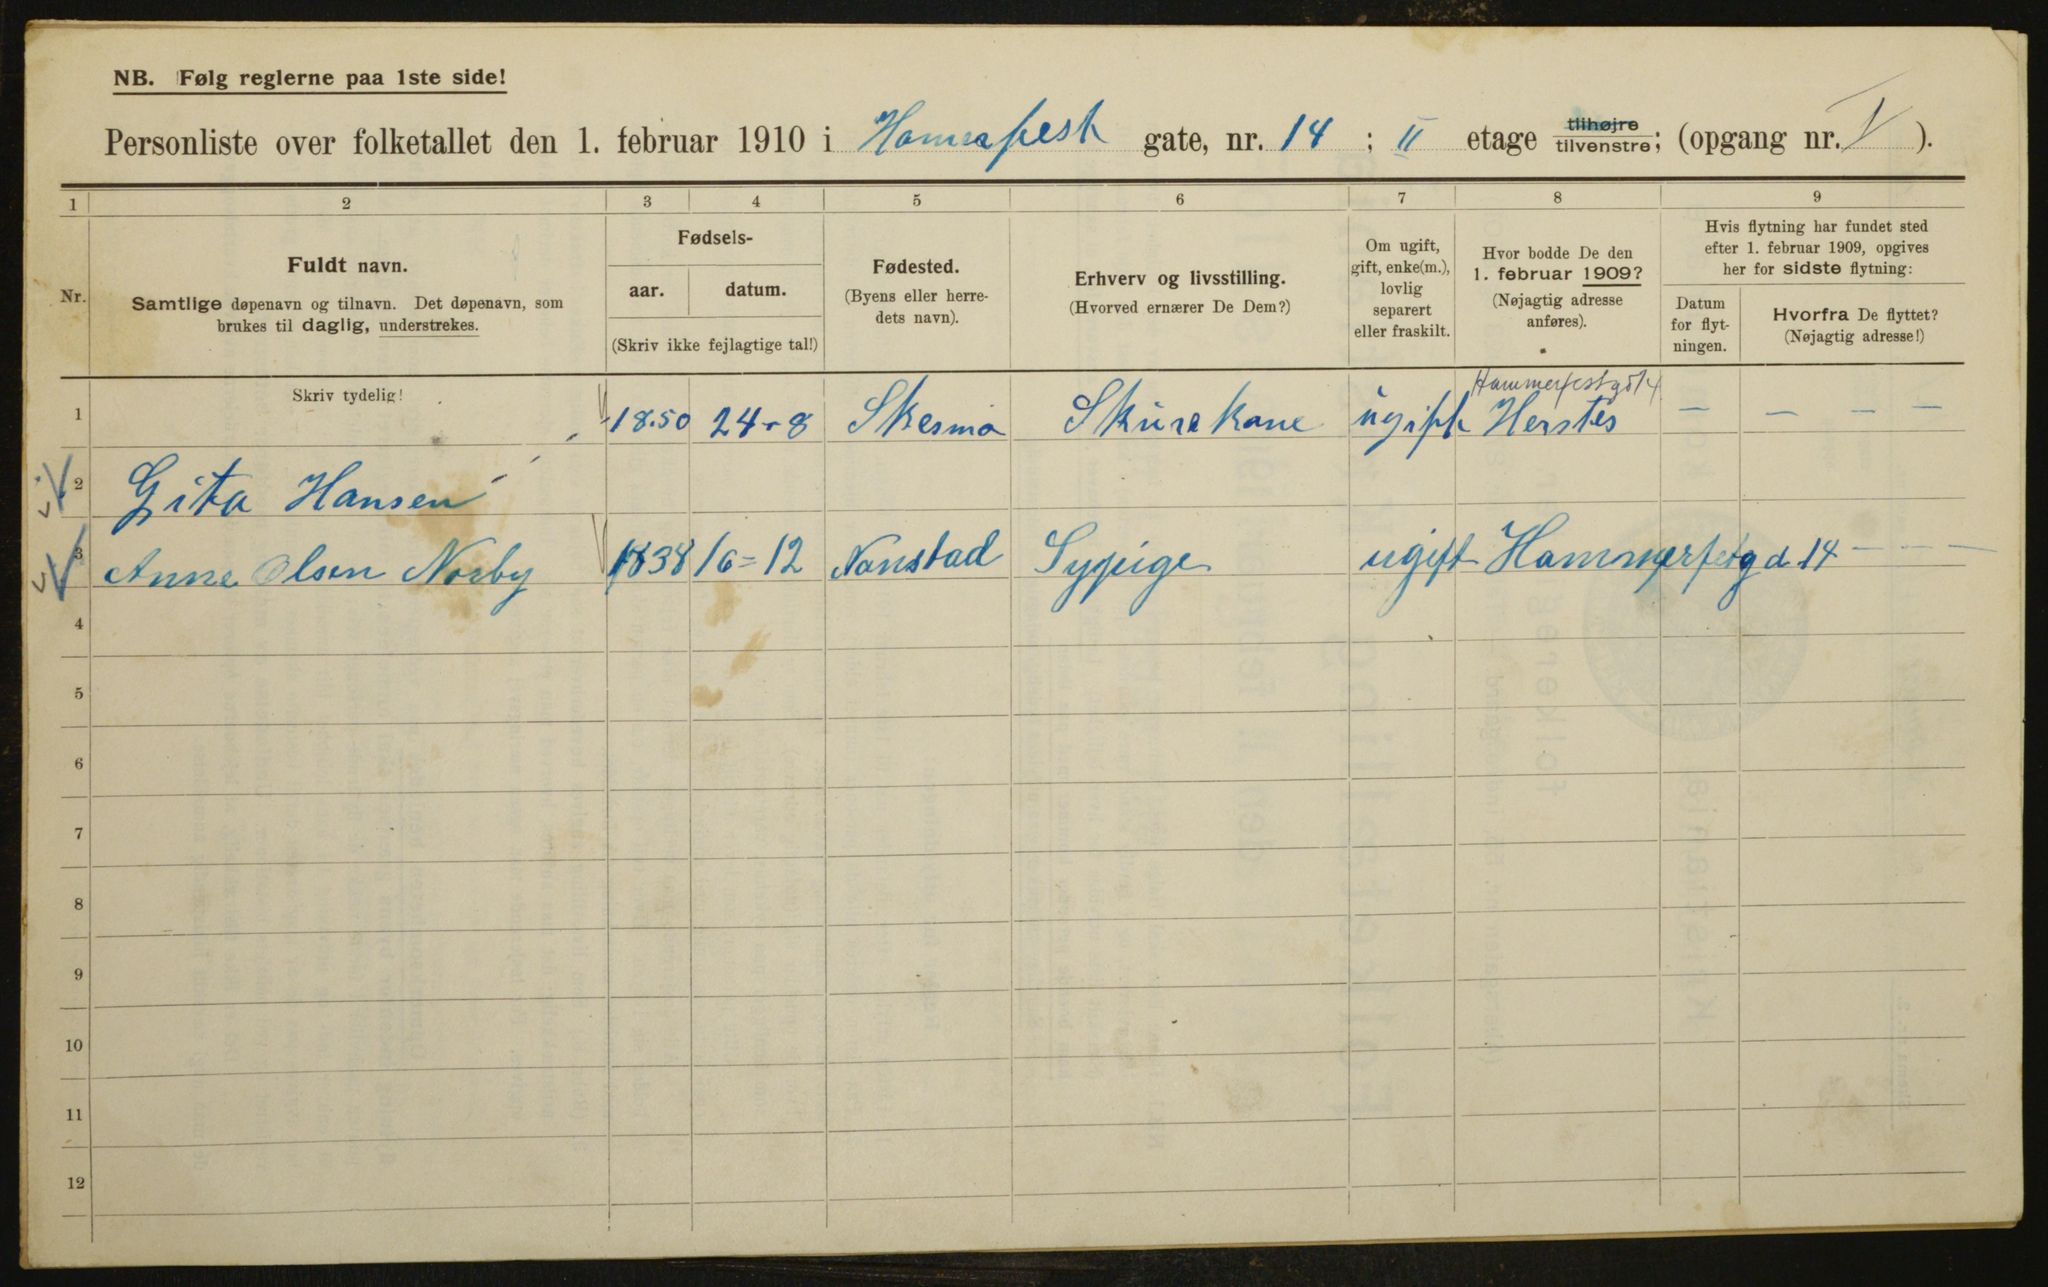 NB. Følg reglerne paa 1ste side!
Personliste over folketallet den 1. februar 1910 i Hamerfest gate, nr. 14 ; II etage tilhøjre tilvenstre; (opgang nr. I ).
1 2 3 4 5 6 7 8 9
Nr.
Fuldt navn.
Samtlige døpenavn og tilnavn. Det døpenavn, som
brukes til daglig, understrekes.
Fødsels-
aar. datum.
(Skriv ikke fejlagtige tal!)
Fødested.
(Byens eller herre-
dets navn).
Erhverv og livsstilling.
(Hvorved ernærer De Dem?)
Om ugift,
gift, enke(m.),
lovlig
separert
eller fraskilt.
Hvor bodde De den
1. februar 1909?
(Nøjagtig adresse
anføres).
Hvis flytning har fundet sted
efter 1. februar 1909, opgives
her for sidste flytning:
Datum
for flyt-
ningen.
Hvorfra De flyttet?
(Nøjagtig adresse!)
Skriv tydelig!
Hammerfestgd 14
1 18.50 24-8 Skesmo Skurekone ugift Herstes — — — —
2 Gita Hansen
3 Anne Olsen Norby 1838 16=12 Nanstad Sypige ugift Hammerfetg d. 14 — — —
4
5
6
7
8
9
10
11
12